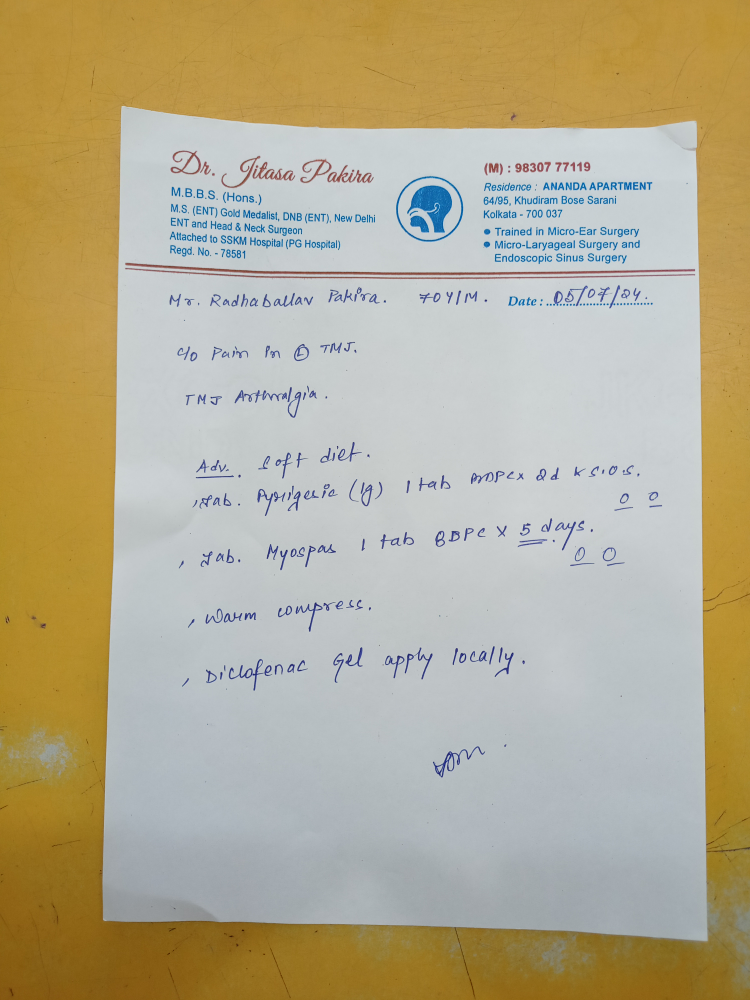 Dr. Jitasa Pakira
M.B.B.S. (Hons.)
M.S. (ENT) Gold Medalist, DNB (ENT), New Delhi
ENT and Head & Neck Surgeon
Attached to SSKM Hospital (PG Hospital)
Regd. No. - 78581
(M) : 98307 77119
Residence : ANANDA APARTMENT
64/95, Khudiram Bose Sarani
Kolkata - 700 037
• Trained in Micro-Ear Surgery
• Micro-Laryageal Surgery and
Endoscopic Sinus Surgery
Mr. Radhaballav Pakira. 70Y/M. Date : 05/07/24.
c/o Pain in Ⓛ TMJ.
TMJ Arthralgia.
Adv. Soft diet.
, Tab. (1g) 1 tab x 2d S.O.S.
, Tab. Myospas 1 tab BDPC x 5 days.
, Warm compress.
, Diclofenac Gel apply locally.